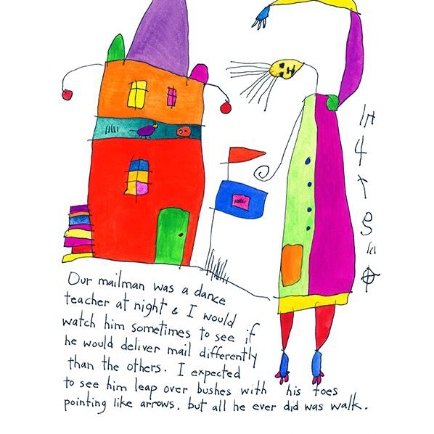 Our mailman was a dance
teacher at night & I would
watch him sometimes to see if
he would deliver mail differently
than the others. I expected
to see him leap over bushes with his toes
pointing like arrows. but all he ever did was walk.